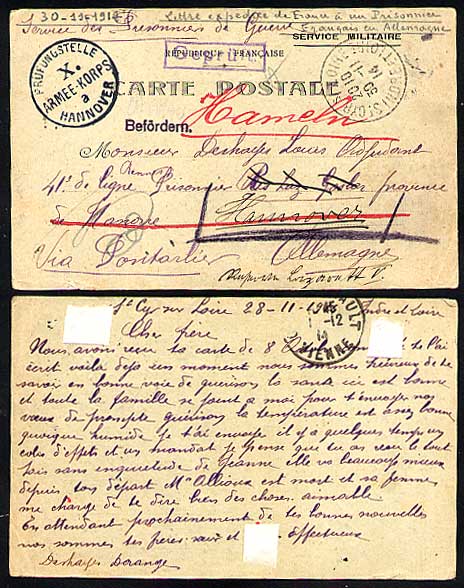 30-11-1914 Lettre expediée de France à un Prisonnier
Service des Prisonniers de Guerre Français en Allemagne
SERVICE MILITAIRE
RÉPUBLIQUE FRANÇAISE
Geprüft
PRÜFUNGSTELLE
X.
ARMEE-KORPS
a
HANNOVER
CARTE POSTALE
Hameln
Befördern.
Monsieur Deshayes Louis
41e de ligne Prisonnier province
de Hanovre Hannover
Via Pontarlier Allemagne
St Cyr sur Loire 28-11-19 Indre et Loire
VIENNE
Cher frère
Nous avons reçu ta carte de 8
écrit voila deja un moment nous sommes heureux de te
savoir en bonne voie de guerison la santé ici est bonne
et toute la famille se joint a moi pour t'envoyer nos
vœux de prompte guerison la température est assez bonne
quoique humide je t'ai envoyé il y a quelques temps un
colis d'effets et un mandat je pense que tu as reçu le tout
sois sans inquietude de Jeanne elle va beaucoup mieux
depuis ton départ Mr est mort et sa femme
me charge de te dire bien des choses aimable
En attendant prochainement de tes bonnes nouvelles
nous sommes tes frères et affectueux
Deshayes